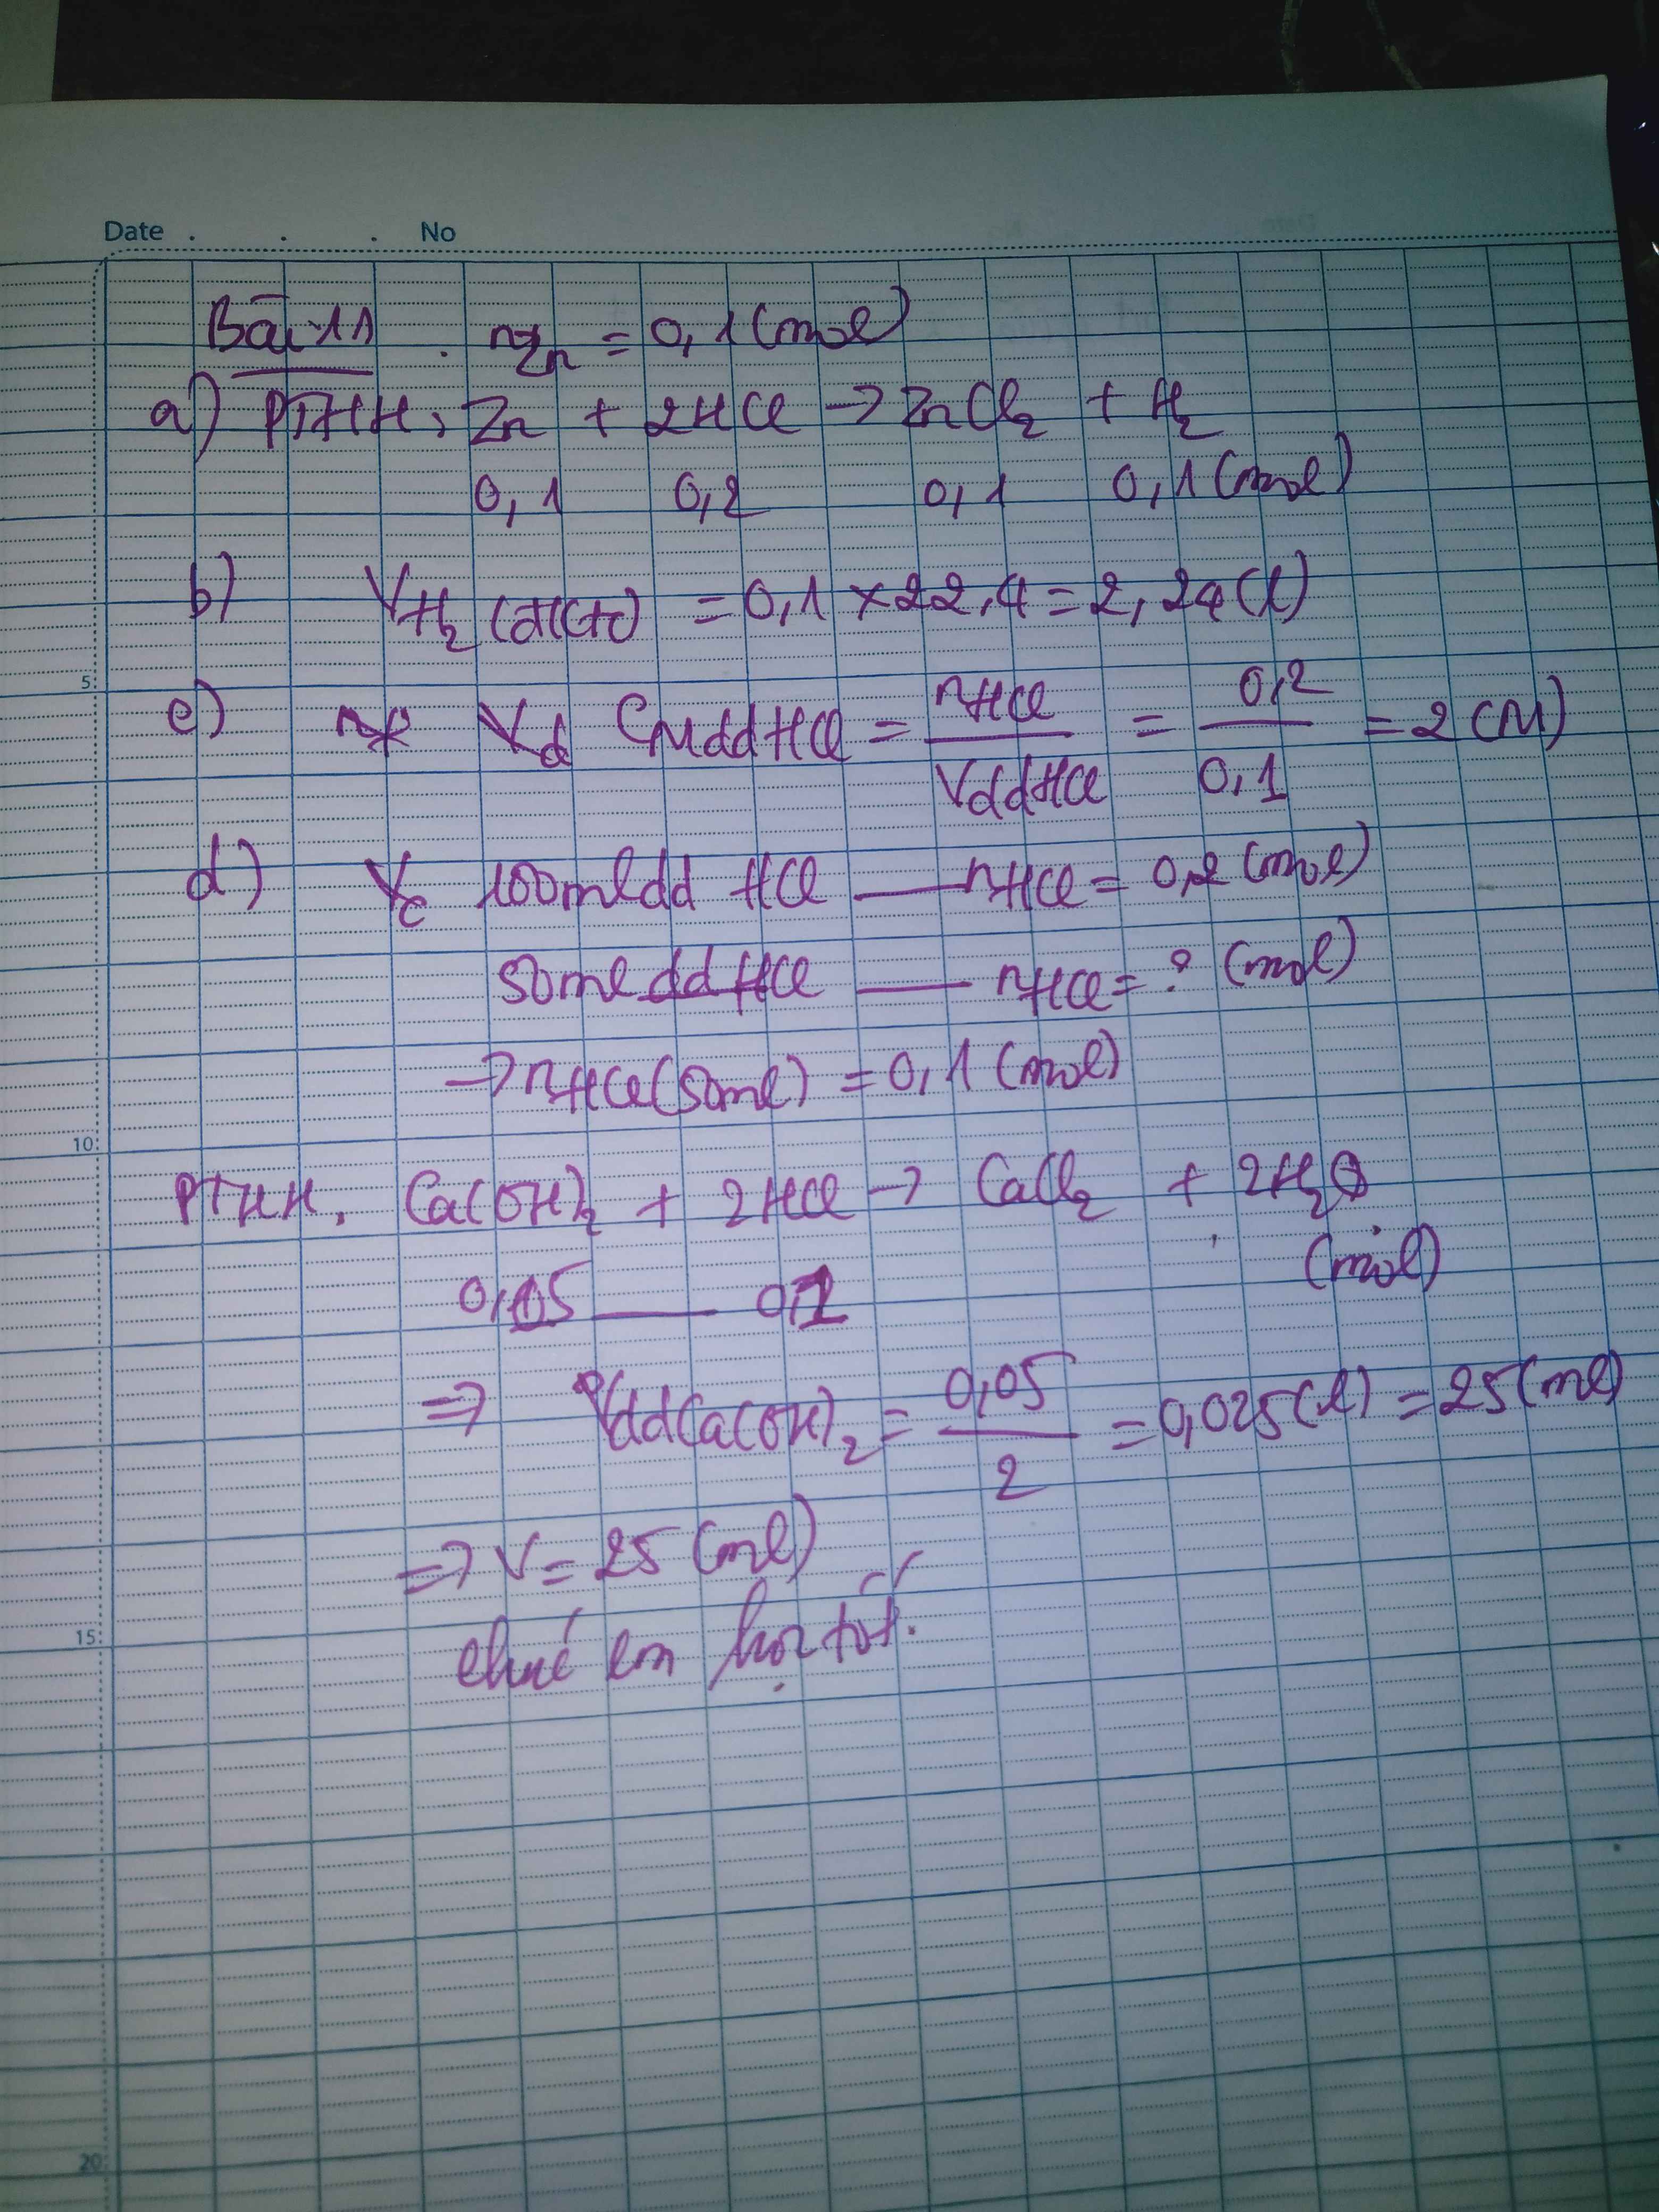 Date . . . No
Bài 11 . nZn = 0,1 (mol)
a) PTHH: Zn + 2HCl → ZnCl₂ + H₂
0,1 0,2 0,1 0,1 (mol)
b) VH₂ (đktc) = 0,1 × 22,4 = 2,24 (l)
5
c) CMddHCl = nHCl / VddHCl = 0,2 / 0,1 = 2 (M)
d) 100ml dd HCl — nHCl = 0,2 (mol)
50ml dd HCl — nHCl = ? (mol)
→ nHCl (50ml) = 0,1 (mol)
10
PTHH: Ca(OH)₂ + 2HCl → CaCl₂ + 2H₂O
0,05 — 0,1 (mol)
⇒ VddCa(OH)₂ = 0,05 / 2 = 0,025 (l) = 25 (ml)
⇒ V = 25 (ml)
15
chúc em học tốt.
20